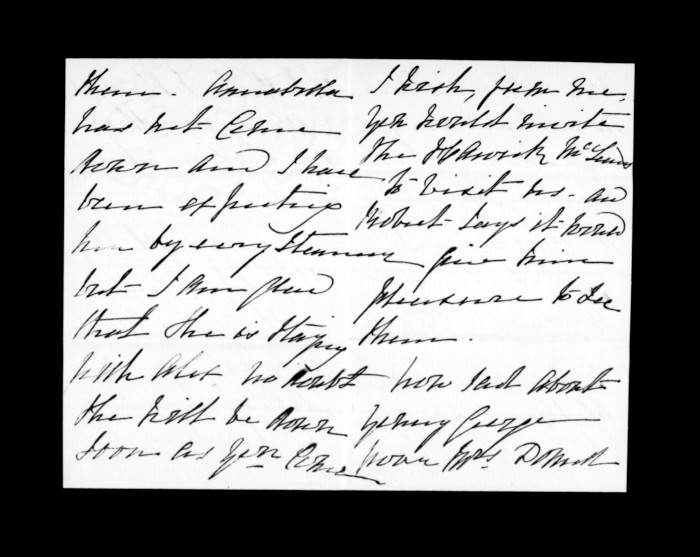 them. Annabella
has not come
down and I have
been expecting
her by every Steamer
but I am glad
that she is staying
with Alex no doubt
she will be down
soon as you come
I wish, from me,
you would invite
the McLeans
to visit us - and
Robert says it would
give him
pleasure to see
them.
how sad about
young George
poor Mrs